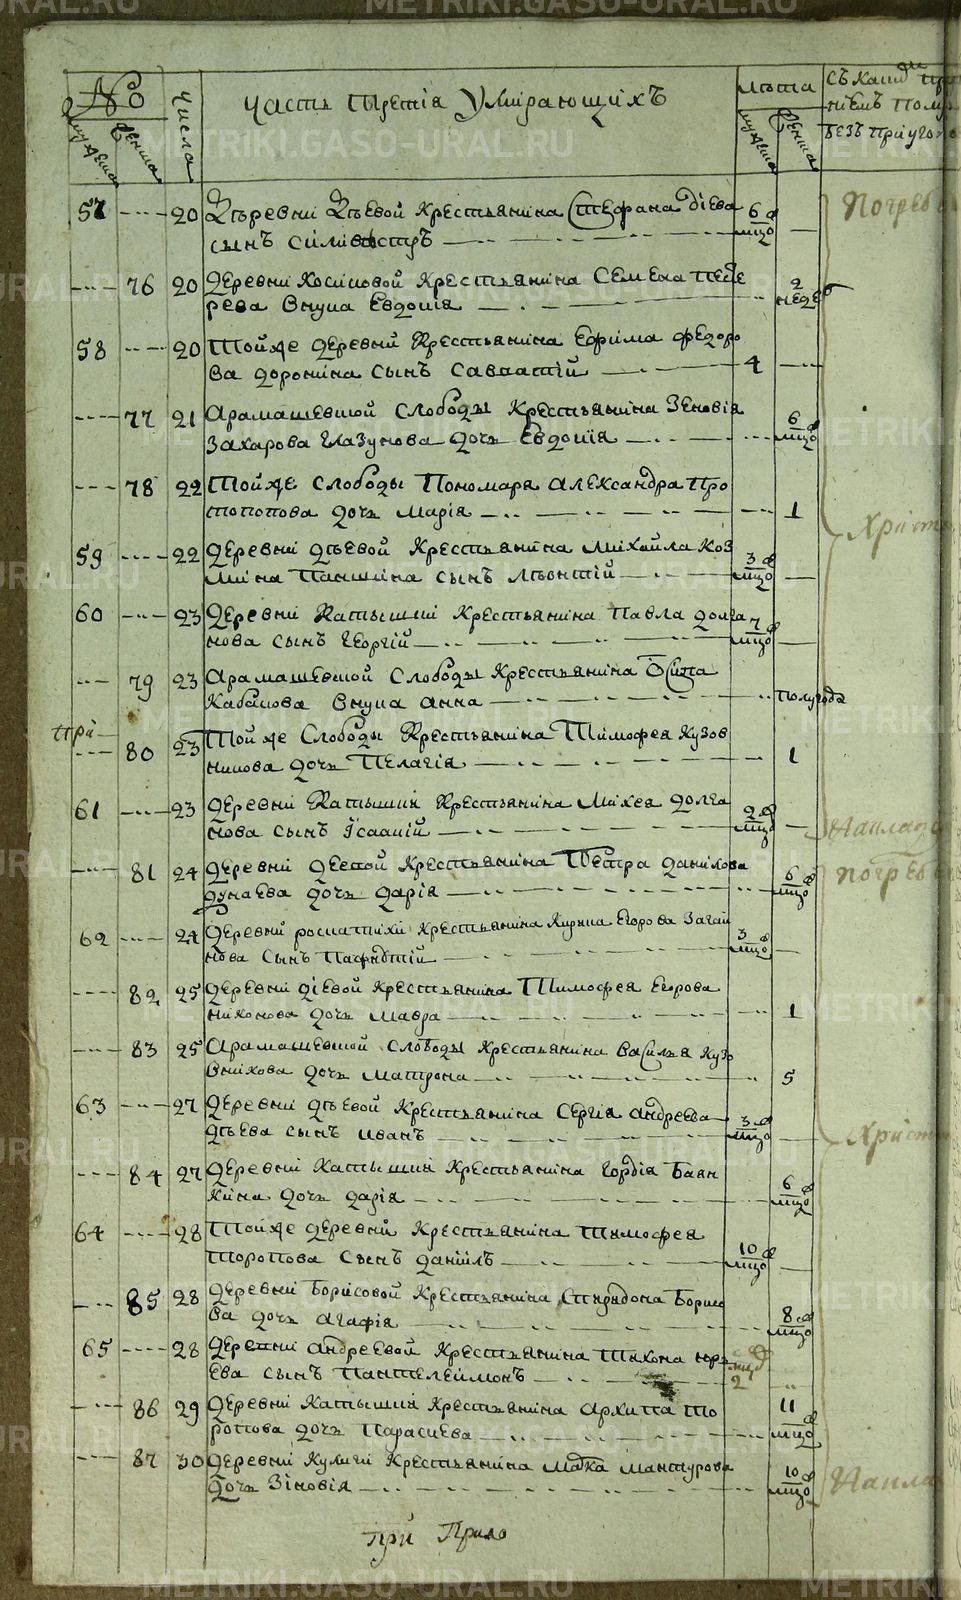 METRIKI.GASO-URAL.RU
№ числа Часть третія Умирающихъ лѣта
мужеска женска мужеска женска
57 20 Деревни Дѣевой крестьянина Стефана Дѣева 6
сынъ Силивестръ мцо
76 20 Деревни Косиковой крестьянина Семена 2
рева внука Евдокія недел
58 20 Той же деревни крестьянина Ефима Федоро
ва Доронина сынъ Савватій 4
77 21 Арамашевской слободы крестьянина Зеновія 6
Захарова Глазунова дочь Евдокія мцо
78 22 Той же слободы пономаря Александра Про
топопова дочь Марія 1
59 22 Деревни Дѣевой крестьянина Михайла Коз 3
мина Паншина сынъ Леонтій мцо
60 23 Деревни Катышки крестьянина Павла Долга 7
нова сынъ Георгій мцо
79 23 Арамашевской слободы крестьянина Осипа
Кабакова внука Анна полугода
при
80 23 Той же слободы крестьянина Тимофея Кузов
никова дочь Пелагія 1
61 23 Деревни Катышки крестьянина Михея Долга 2
нова сынъ Ісаакій мцо
81 24 Деревни крестьянина Петра Данилова 6
Дунаева дочь Дарія мцо
62 24 Деревни Роскатихи крестьянина Егорова 3
нова сынъ Пафнутій мцо
82 25 Деревни Дѣевой крестьянина Тимофея Егорова
Никонова дочь Мавра 1
83 25 Арамашевской слободы крестьянина Василья Кузо
вникова дочь Матрона 5
63 27 Деревни Дѣевой крестьянина Сергія Андреева 3
Дѣева сынъ Иванъ мцо
84 27 Деревни Катышки крестьянина Гордія Баян 6
кина дочь Дарія мцо
64 28 Той же деревни крестьянина Тимофея 10
Торопова сынъ Даніилъ мцо
85 28 Деревни Борисовой крестьянина Спиридона Борисо 8
ва дочь Агафія мцо
65 28 Деревни Андреевой крестьянина Тихона Юрь
ева сынъ Пантелеймонъ 2
86 29 Деревни Катышки крестьянина Архипа То 11
ропова дочь Параскева мцо
87 30 Деревни Кулиги крестьянина Марка Мантурова 10
дочь Зіновія мцо
при